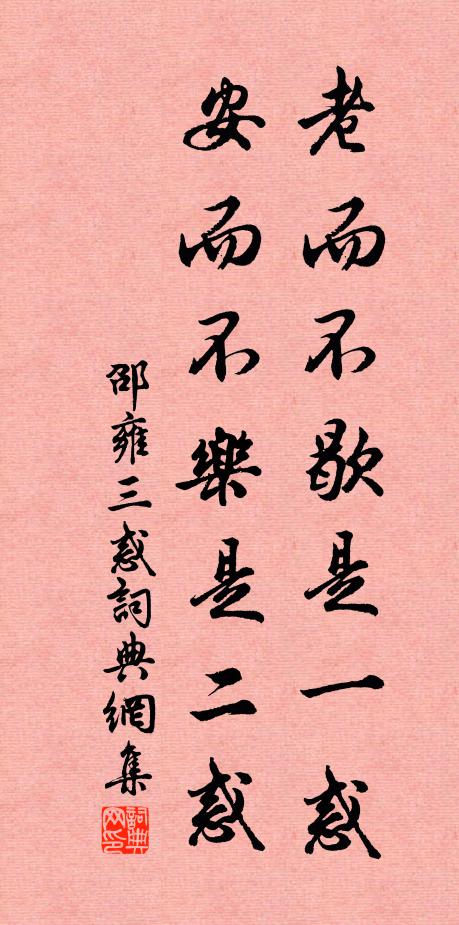 老而不歇是一惑
安而不樂是二惑
邵雍三惑詞典網集
詞典网印